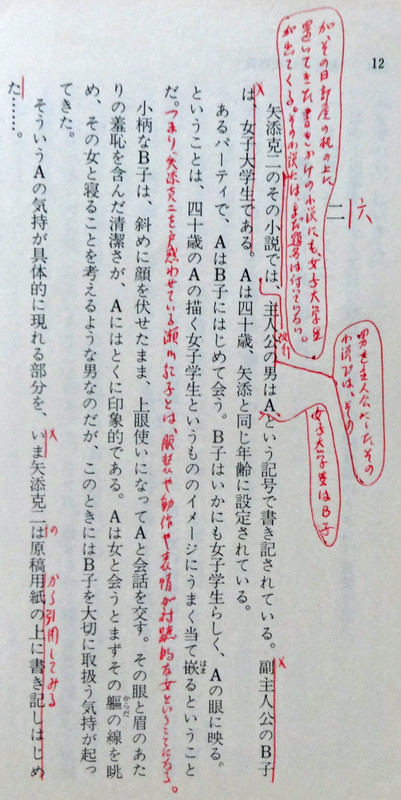 12
二
六
が、その日部屋の机の上に
置いてきた書きかけの小説にも、女子大学生
が出てくる。その小説には、まだ題名は付いていない。
男を主人公にしたその
小説では、その
女子大学生はB子
改行
矢添克二のその小説では、主人公の男はAという記号で書き記されている。副主人公のB子
は、女子大学生である。Aは四十歳、矢添と同じ年齢に設定されている。
あるパーティで、AはB子にはじめて会う。B子はいかにも女子学生らしく、Aの眼に映る。
ということは、四十歳のAの描く女子学生というもののイメージにうまく当て嵌るということ
はま
だ。つまり、矢添克二を戸惑わせている瀬川紀子とは、服装や動作や表情が対蹠的な女ということになる。
小柄なB子は、斜めに顔を伏せたまま、上眼使いになってAと会話を交す。その眼と眉のあた
りの羞恥を含んだ清潔さが、Aにはとくに印象的である。Aは女と会うとまずその軀の線を眺
からだ
め、その女と寝ることを考えるような男なのだが、このときにはB子を大切に取扱う気持が起っ
てきた。
そういうAの気持が具体的に現れる部分を、いま矢添克二は原稿用紙の上に書き記しはじめ
の
から引用してみる
た……。